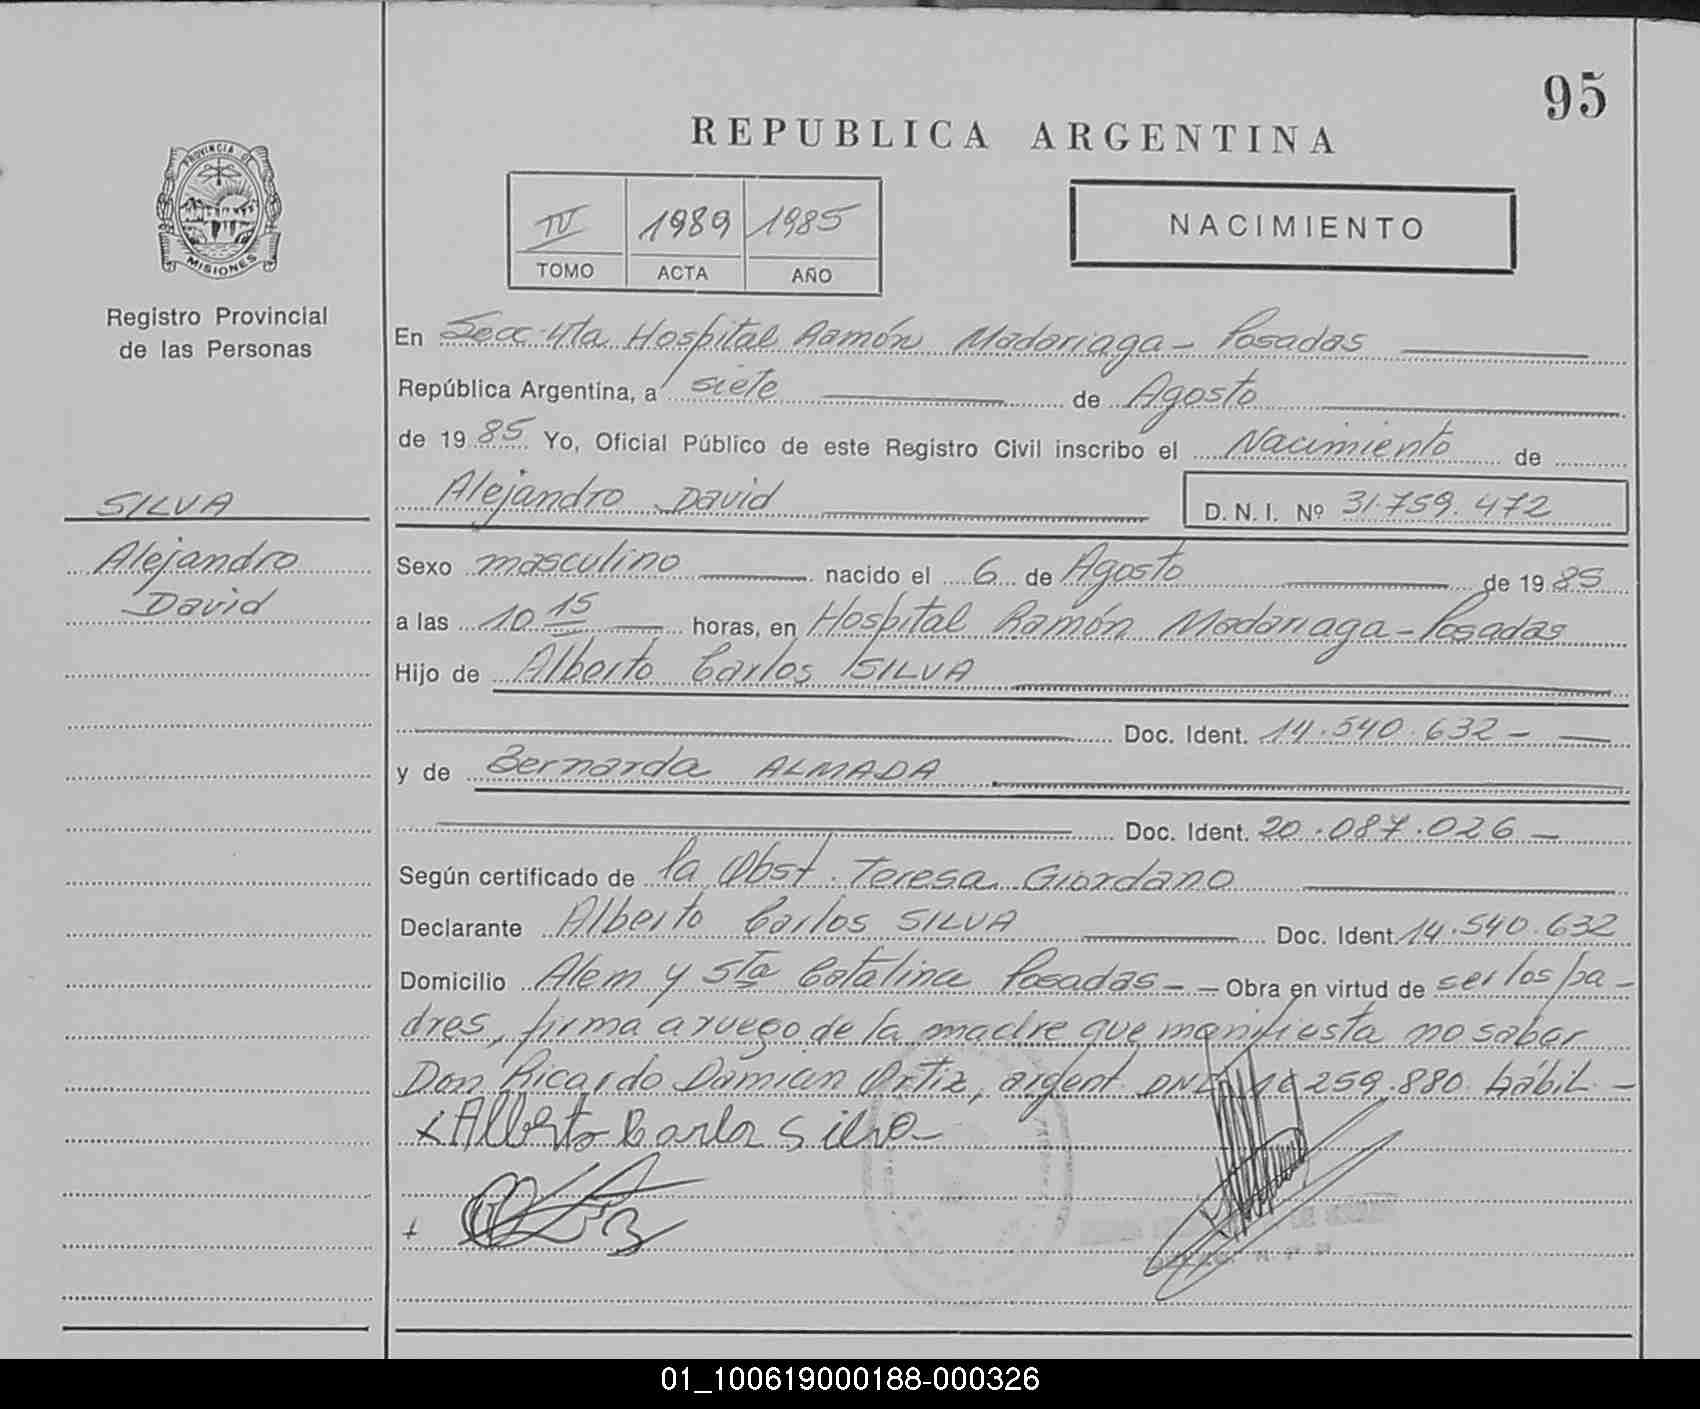 95
REPUBLICA ARGENTINA
PROVINCIA DE
MISIONES
Registro Provincial
de las Personas
IV 1989 1985
TOMO ACTA AÑO
NACIMIENTO
En Secc. 4ta Hospital Ramón Madariaga - Posadas
República Argentina, a siete de Agosto
de 1985. Yo, Oficial Público de este Registro Civil inscribo el Nacimiento de
Alejandro David D. N. I. Nº 31.759.472
SILVA
Alejandro
David
Sexo masculino nacido el 6 de Agosto de 1985
a las 10 15 horas, en Hospital Ramón Madariaga - Posadas
Hijo de Alberto Carlos SILVA
Doc. Ident. 14.540.632 -
y de Bernarda ALMADA
Doc. Ident. 20.087.026 -
Según certificado de la Obst. Teresa Giordano
Declarante Alberto Carlos SILVA Doc. Ident. 14.540.632
Domicilio Alem y Sta Catalina Posadas - - Obra en virtud de ser los pa-
dres, firma a ruego de la madre que manifiesta no saber
Don Ricardo Damian Ortiz, argent. DNI 259.880 hábil -
x Alberto Carlos Silva
01_100619000188-000326